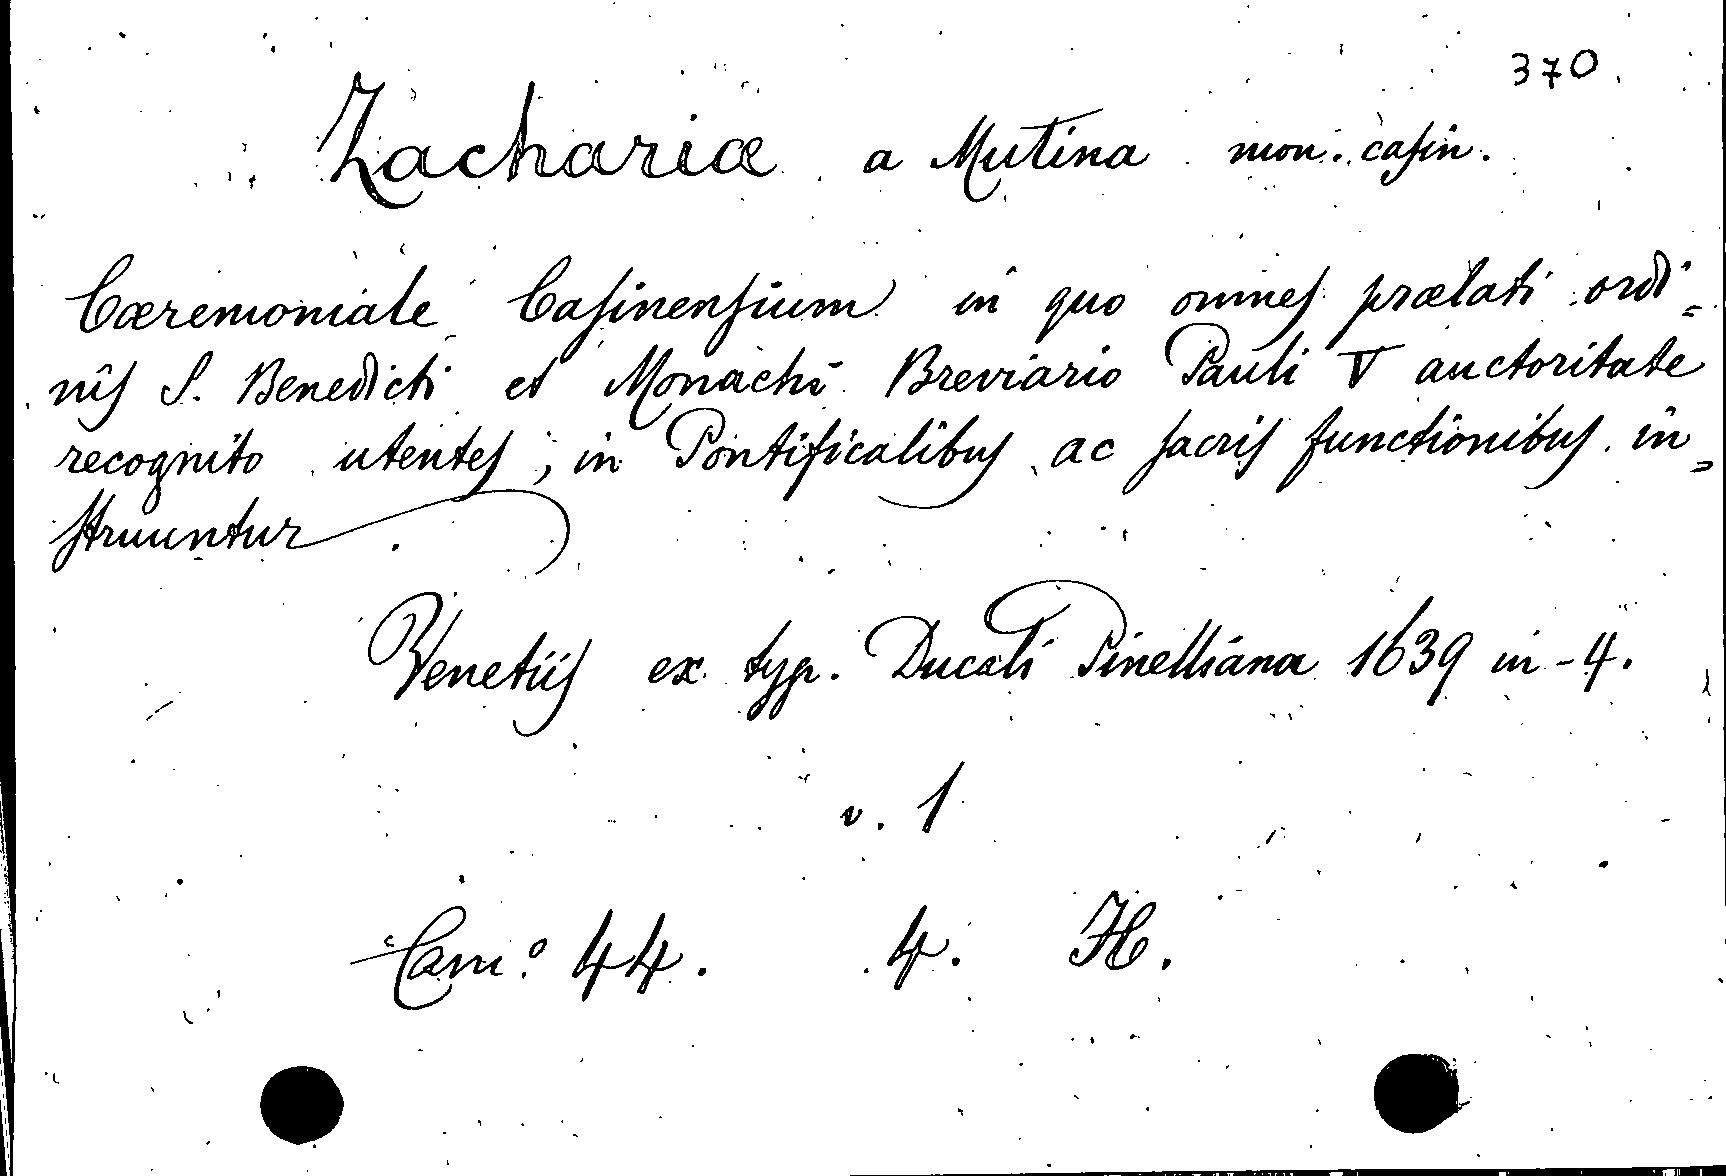 370
Zachariæ a Mutina mon. casin.
Cæremoniale Casinensium in quo omnes prælati ordi=
nis S. Benedicti et Monachi Breviario Pauli V auctoritate
recognito utentes, in Pontificalibus ac sacris functionibus in=
struuntur
Venetiis ex typ. Ducali Pinelliana 1639 in-4.
v. 1
Cam.º 44. 4. H.